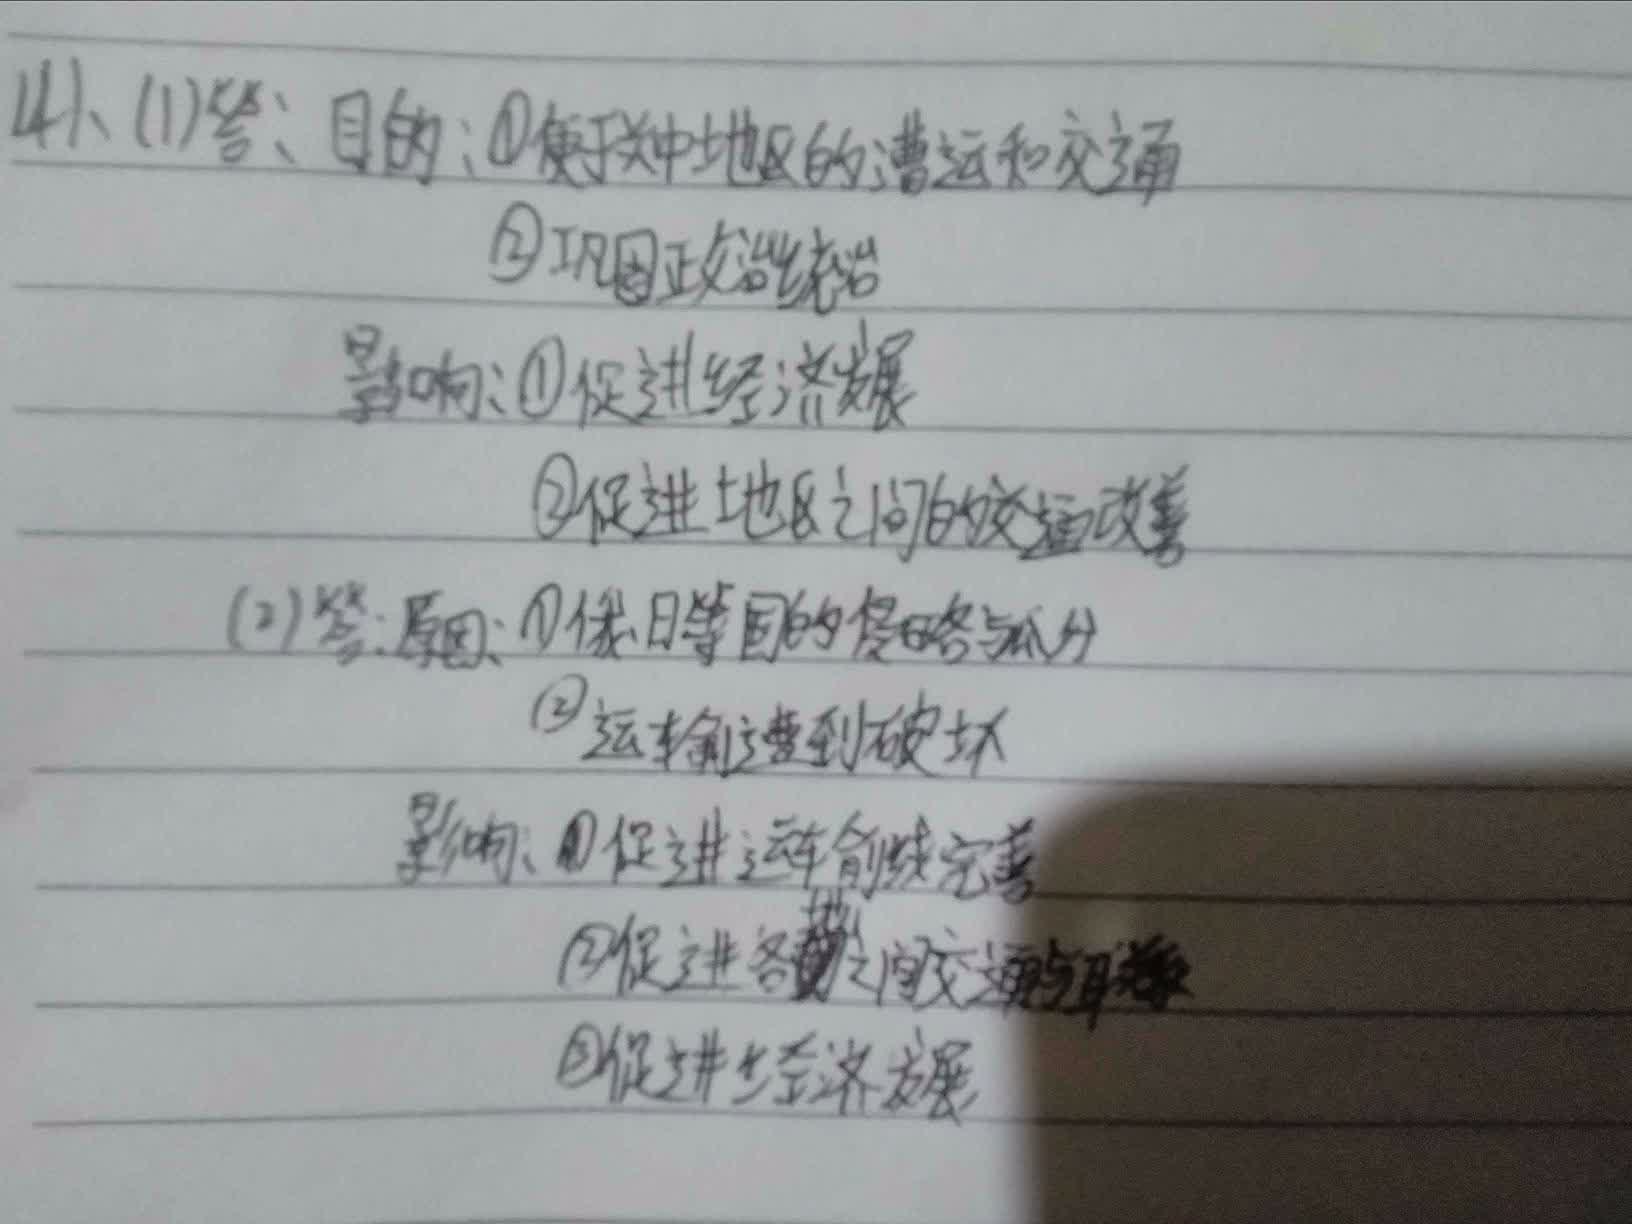 41、(1)答：目的：①便于关中地区的漕运和交通
②巩固政治统治
影响：①促进经济发展
②促进地区之间的交通改善
(2)答：原因：①俄、日等国的侵略与瓜分
②运输遭到破坏
影响：①促进运输线完善
②促进各地之间交通与联系
③促进经济发展